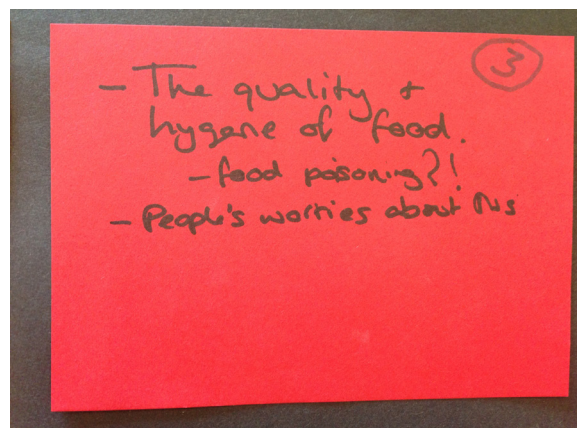 3
- The quality +
hygene of food.
- food poisoning?!
- People's worries about this